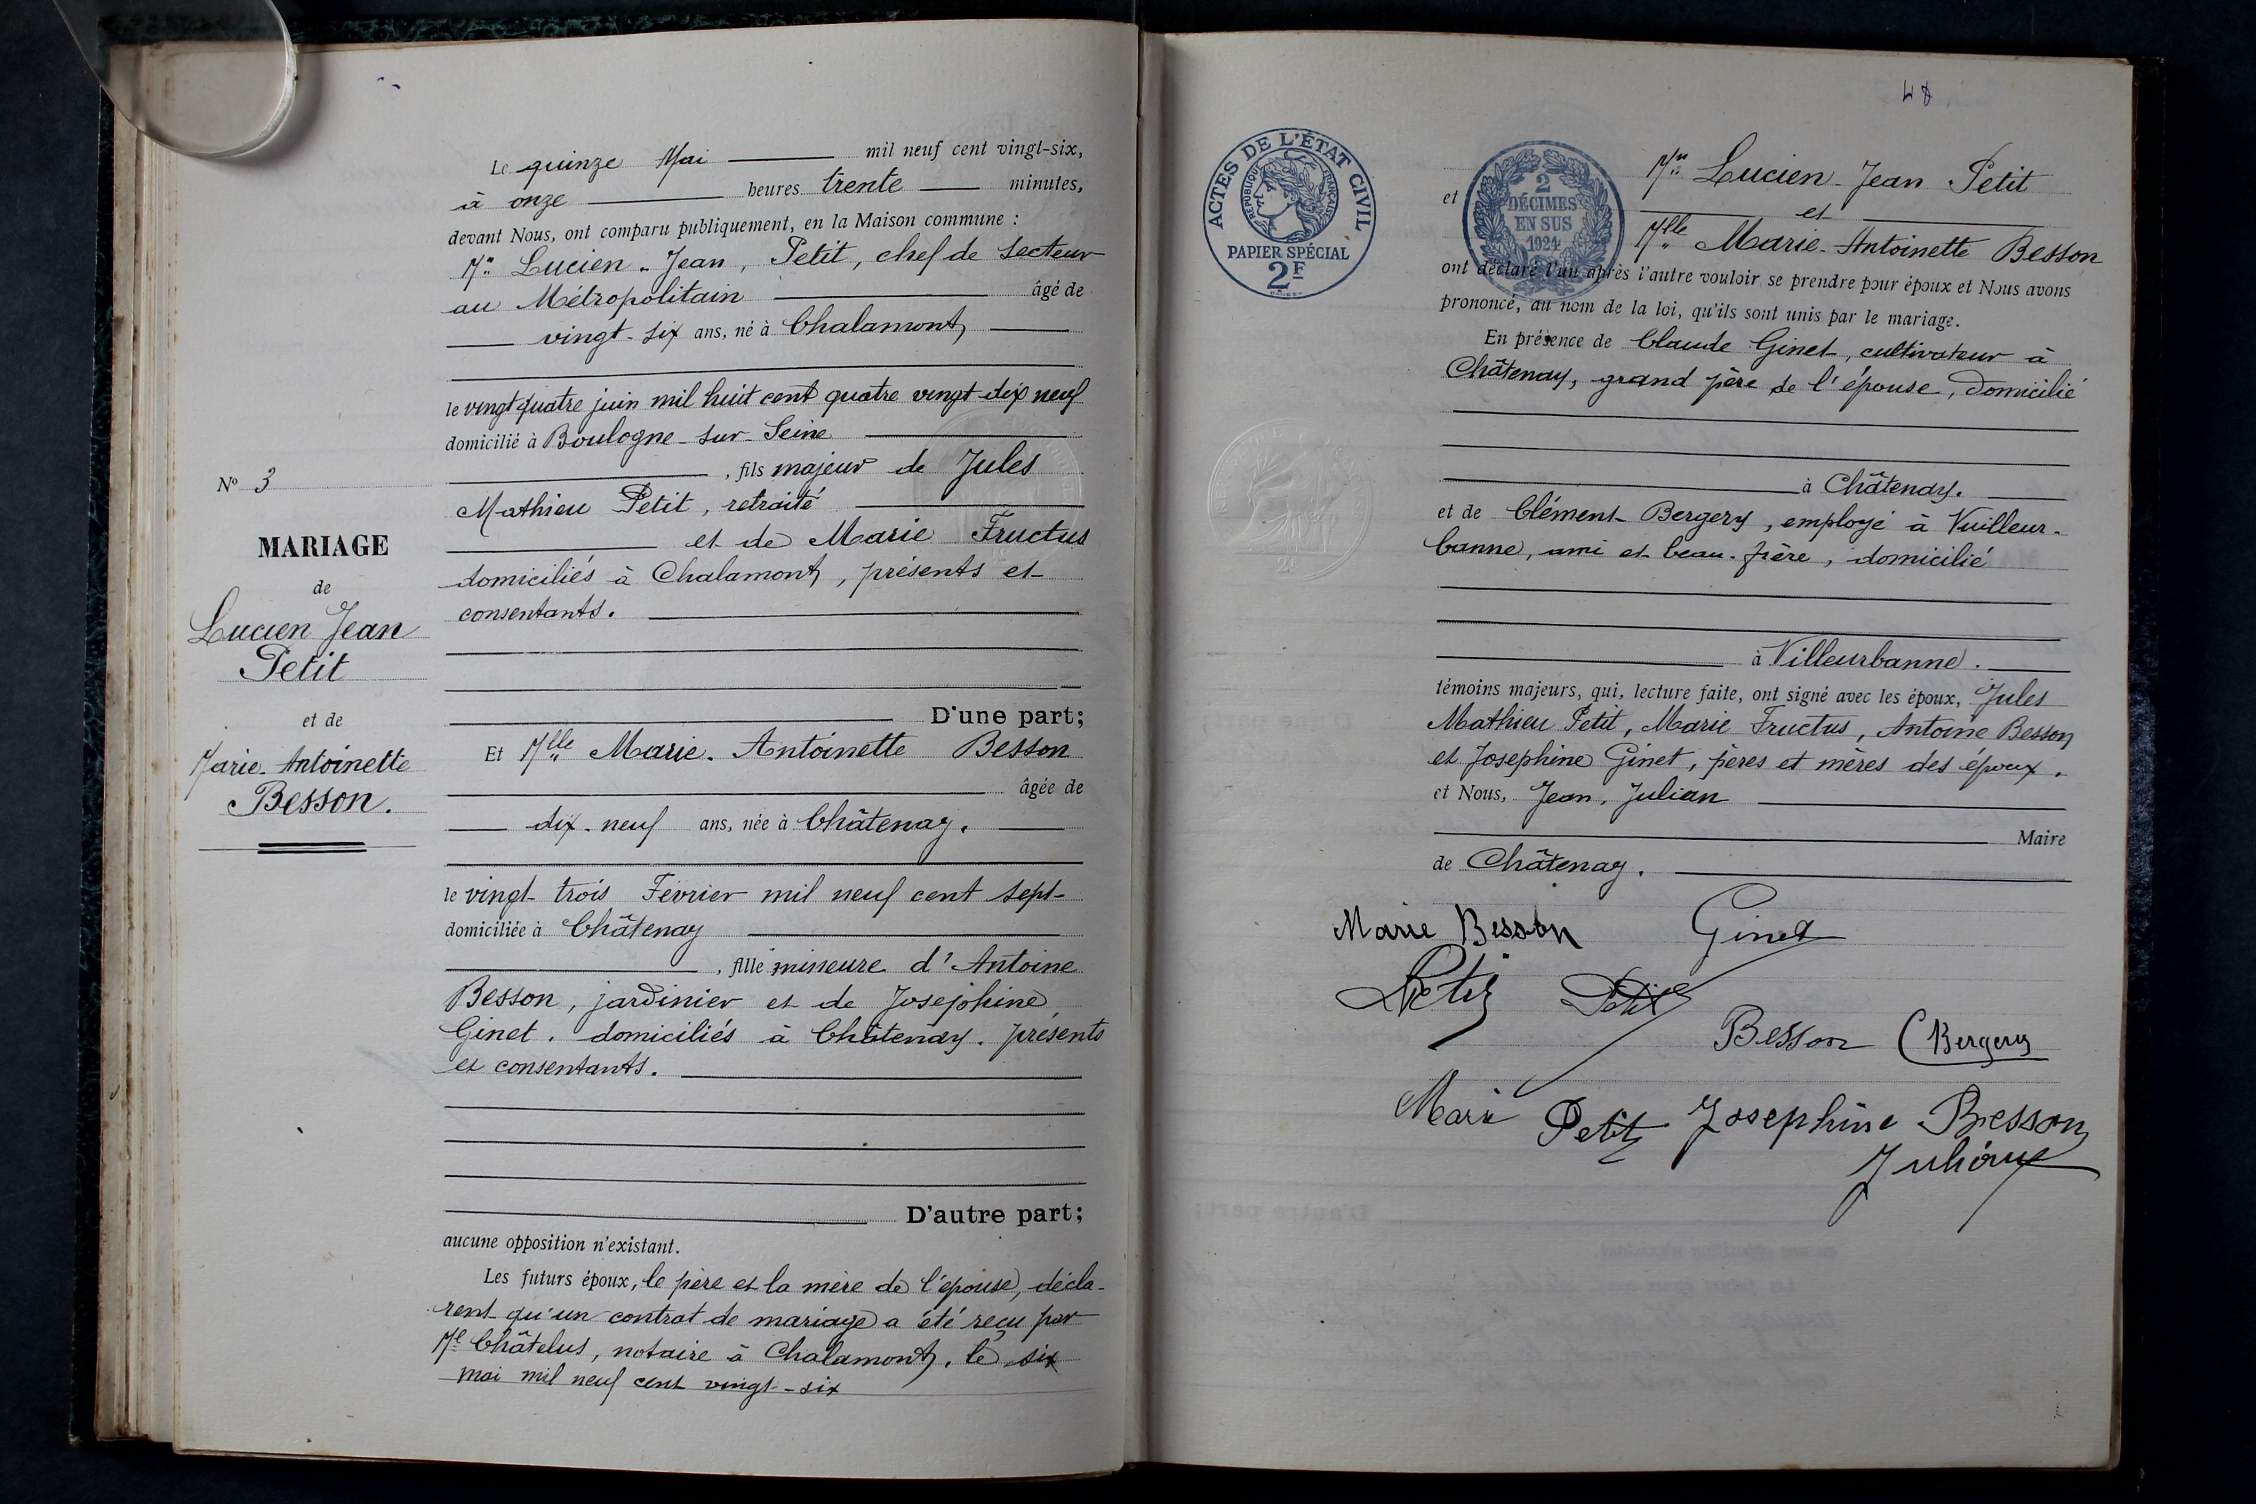 Nº 3
MARIAGE
de
Lucien Jean
Petit
et de
Marie-Antoinette
Besson.
Le quinze Mai mil neuf cent vingt-six,
à onze heures trente minutes,
devant Nous, ont comparu publiquement, en la Maison commune :
Mr Lucien-Jean, Petit, chef de secteur
au Métropolitain âgé de
vingt-six ans, né à Chalamont,
le vingt quatre juin mil huit cent quatre vingt-dix neuf
domicilié à Boulogne-sur-Seine
, fils majeur de Jules
Mathieu Petit, retraité
et de Marie Fructus
domiciliés à Chalamont, présents et
consentants.
D'une part;
Et Mlle Marie-Antoinette Besson
âgée de
dix-neuf ans, née à Châtenay.
le vingt-trois Février mil neuf cent sept
domiciliée à Châtenay
, fille mineure d'Antoine
Besson, jardinier et de Joséphine
Ginet. domiciliés à Châtenay. présents
et consentants.
D'autre part;
aucune opposition n'existant.
Les futurs époux, le père et la mère de l'épouse, décla-
rent qu'un contrat de mariage a été reçu par
Me Châtelus, notaire à Chalamont, le six
mai mil neuf cent vingt-six
48
ACTES DE L'ÉTAT CIVIL
RÉPUBLIQUE FRANÇAISE
PAPIER SPÉCIAL
2F
2
DÉCIMES
EN SUS
1924
Mr Lucien-Jean Petit
et
et
Mlle Marie-Antoinette Besson
ont déclaré l'un après l'autre vouloir se prendre pour époux et Nous avons
prononcé, au nom de la loi, qu'ils sont unis par le mariage.
En présence de Claude Ginet, cultivateur à
Châtenay, grand père de l'épouse, domicilié
à Châtenay.
et de Clément Bergery, employé à Vuilleur-
banne, ami et beau-frère, domicilié
à Villeurbanne.
témoins majeurs, qui, lecture faite, ont signé avec les époux, Jules
Mathieu Petit, Marie Fructus, Antoine Besson
et Josephine Ginet, pères et mères des époux.
et Nous, Jean, Julian
Maire
de Châtenay.
Marie Besson Ginet
Petit Petit
Besson CBergery
Marie Petit Josephine Besson